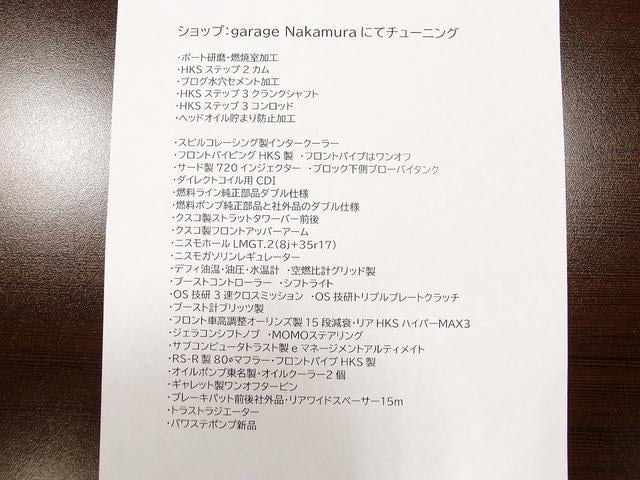 ショップ：garage Nakamura にてチューニング
・ポート研磨・燃焼室加工
・HKS ステップ 2 カム
・ブログ水穴セメント加工
・HKS ステップ 3 クランクシャフト
・HKS ステップ 3 コンロッド
・ヘッドオイル貯まり防止加工
・スピルコレーシング製インタークーラー
・フロントパイピング HKS 製　・フロントパイプはワンオフ
・サード製 720 インジェクター　・ブロック下側ブローバイタンク
・ダイレクトコイル用 CDI
・燃料ライン純正部品ダブル仕様
・燃料ポンプ純正部品と社外品のダブル仕様
・クスコ製ストラットタワーバー前後
・クスコ製フロントアッパーアーム
・ニスモホール LMGT.2(8j+35r17)
・ニスモガソリンレギュレーター
・デフィ油温・油圧・水温計　・空燃比計グリッド製
・ブーストコントローラー　・シフトライト
・OS 技研 3 速クロスミッション　・OS 技研トリプルプレートクラッチ
・ブースト計ブリッツ製
・フロント車高調整オーリンズ製 15 段減衰・リア HKS ハイパーMAX3
・ジェラコンシフトノブ　・MOMOステアリング
・サブコンピュータトラスト製 e マネージメントアルティメイト
・RS-R 製 80⌀マフラー・フロントパイプ HKS 製
・オイルポンプ東名製・オイルクーラー2 個
・ギャレット製ワンオフタービン
・ブレーキパット前後社外品・リアワイドスペーサー15m
・トラストラジエーター
・パワステポンプ新品